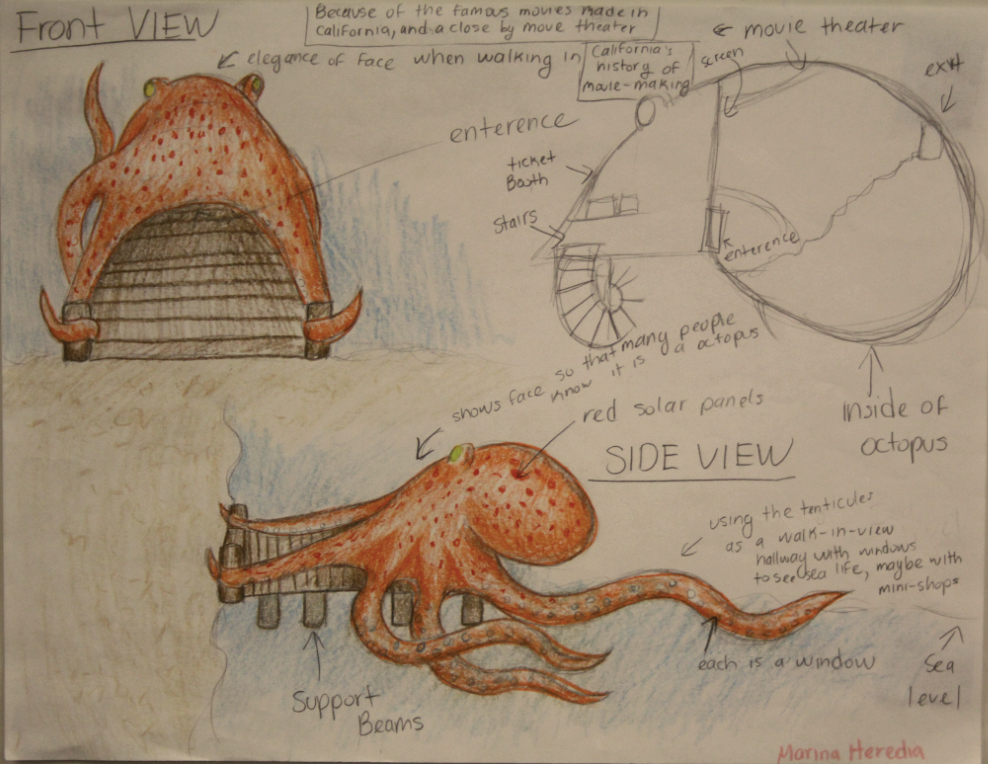 Front VIEW
Because of the famous movies made in
California, and a close by move theater
elegance of face when walking in
California's
history of
movie-making
screen
movie theater
exit
enterence
ticket
Booth
Stairs
enterence
shows face so that many people
know it is a octopus
red solar panels
Inside of
octopus
SIDE VIEW
using the tenticules
as a walk-in-view
hallway with windows
to see sea life, maybe with
mini-shops
each is a window
Sea
level
Support
Beams
Marina Heredia